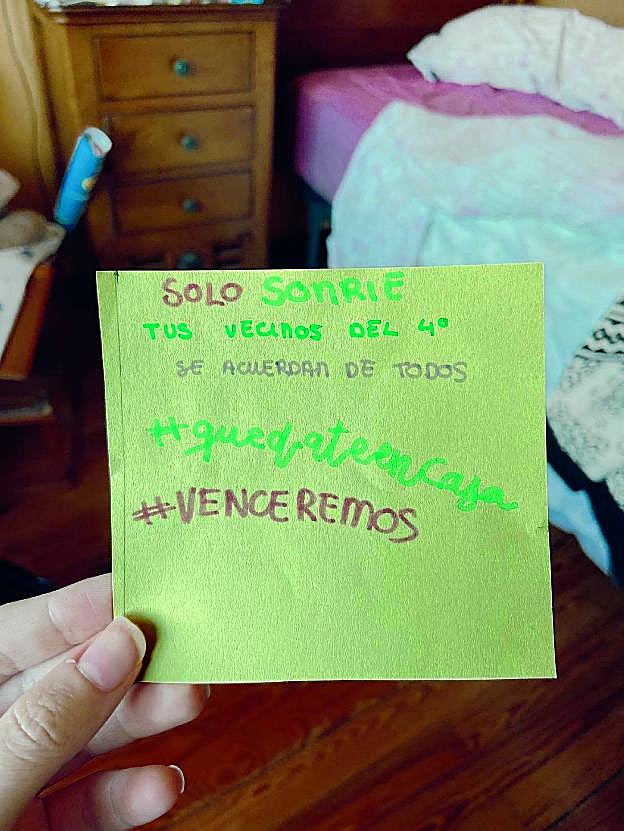 SOLO SONRIE
TUS VECINOS DEL 4º
SE ACUERDAN DE TODOS
#quedateencasa
#VENCEREMOS